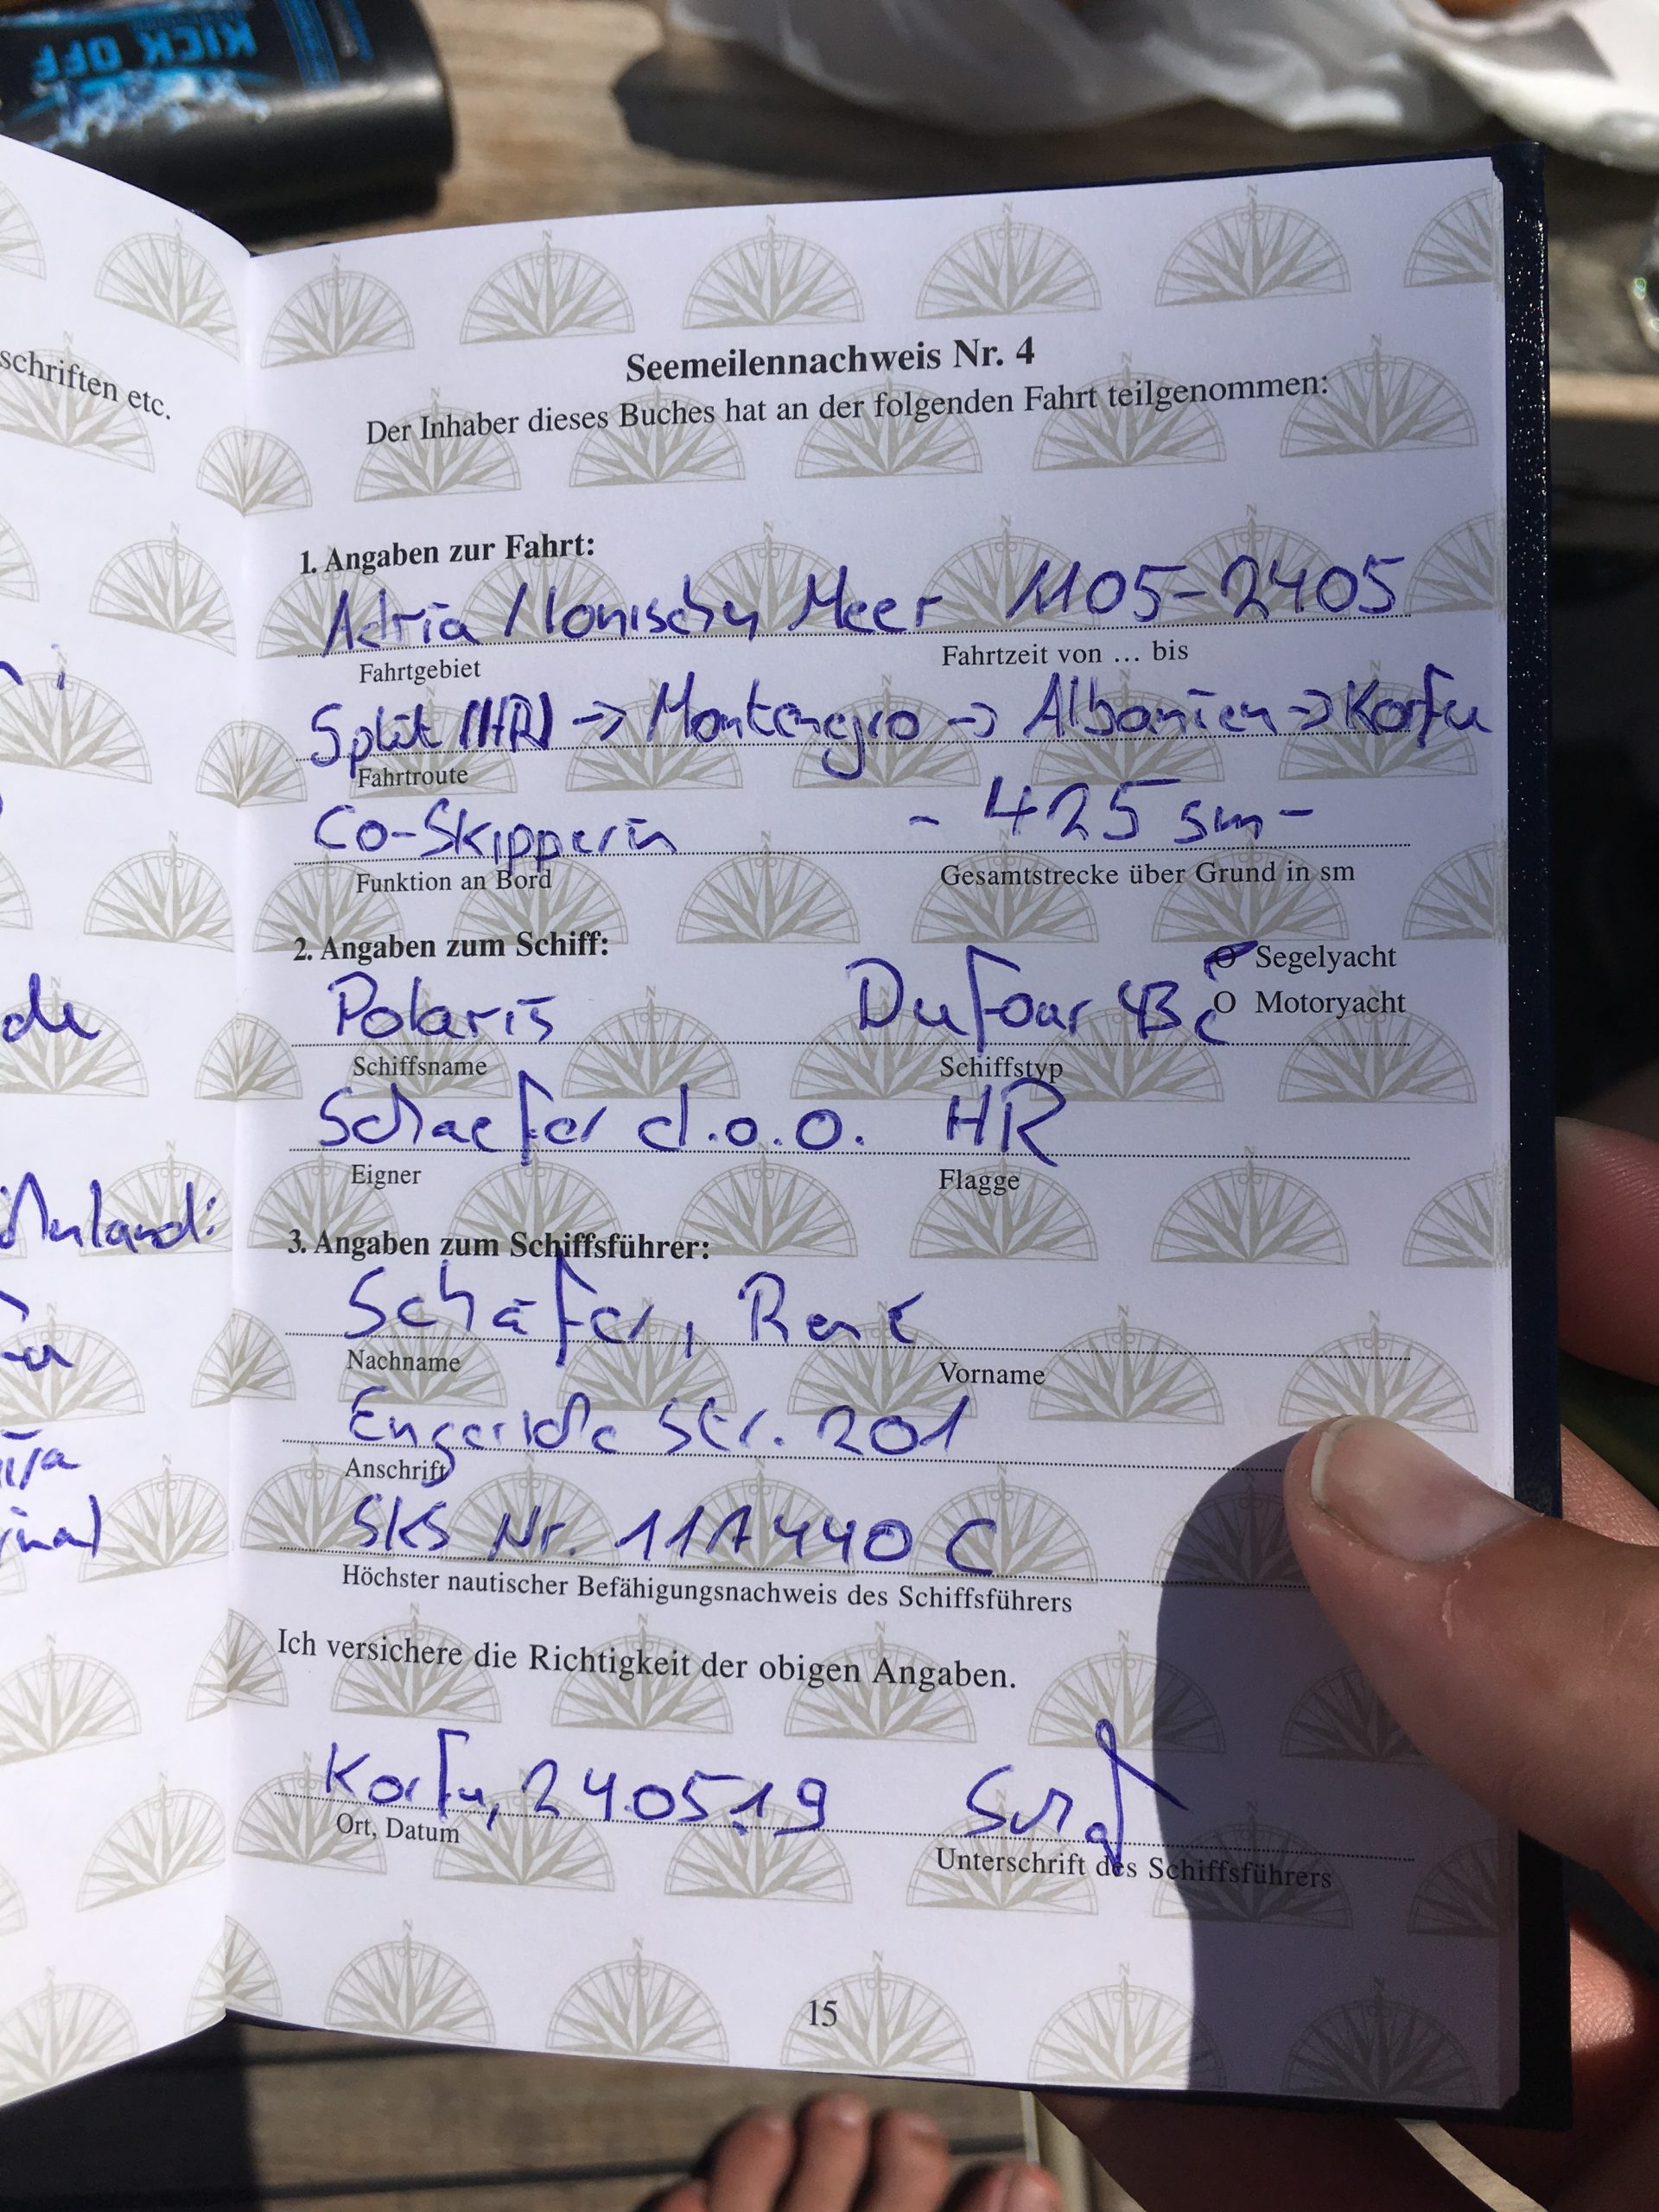 KICK OFF
schriften etc.
de
Seemeilennachweis Nr. 4
Der Inhaber dieses Buches hat an der folgenden Fahrt teilgenommen:
1. Angaben zur Fahrt:
Adria / Ionisches Meer 1105-2405
Fahrtgebiet Fahrtzeit von ... bis
Split (HR) -> Montenegro -> Albanien -> Korfu
Fahrtroute
Co-Skipperin - 425 sm -
Funktion an Bord Gesamtstrecke über Grund in sm
2. Angaben zum Schiff:
O Segelyacht
Polaris Dufour O Motoryacht
Schiffsname Schiffstyp
Schaefer d.o.o. HR
Eigner Flagge
3. Angaben zum Schiffsführer:
Schäfer, René
Nachname Vorname
Str. 201
Anschrift
SKS Nr. 111440 C
Höchster nautischer Befähigungsnachweis des Schiffsführers
Ich versichere die Richtigkeit der obigen Angaben.
Korfu, 24.05.19
Ort, Datum Unterschrift des Schiffsführers
15